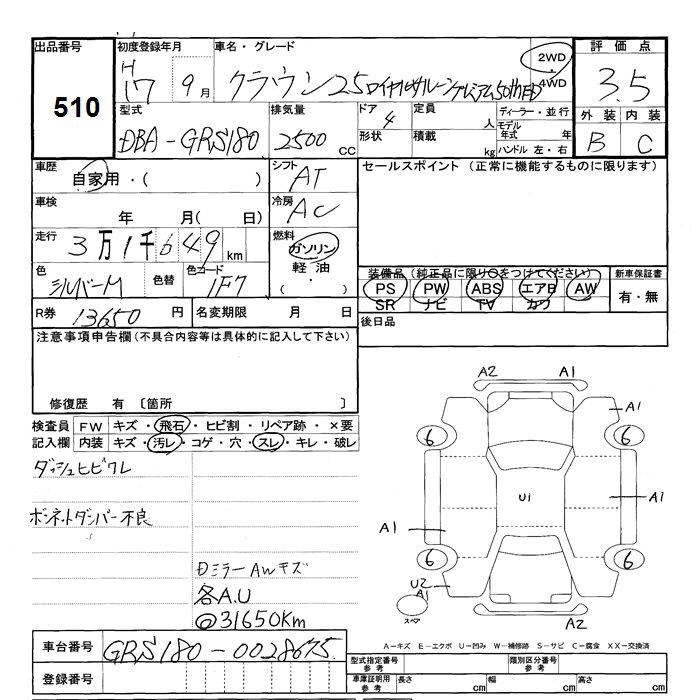 出品番号 初度登録年月 車名・グレード 2WD 4WD 評価点
510 H 17 9月 クラウン 2.5 ロイヤルサルーン プレミアム50thED 3.5
型式 排気量 ドア 定員 人 ディーラー・並行 外装 内装
DBA-GRS180 2500 cc 4 形状 積載 kg モデル年式 年 ハンドル 左・右 B C
車歴 自家用・( ) シフト AT セールスポイント (正常に機能するものに限ります)
車検 年 月( 日) 冷房 AC
走行 3万1千649 km 燃料 ガソリン 軽油 ( ・ )
色 シルバーM 色替 色コード 1F7 装備品(純正品に限り○をつけてください) 新車保証書
PS PW ABS エアB AW 有・無
SR ナビ TV カワ
R券 13650 円 名変期限 月 日 後日品
注意事項申告欄(不具合内容等は具体的に記入して下さい)
修復歴 有 〔箇所 〕
検査員 FW キズ・飛石・ヒビ割・リペア跡・×要
記入欄 内装 キズ・汚レ・コゲ・穴・スレ・キレ・破レ
ダッシュヒビワレ
ボンネットダンパー不良
Dミラー AWキズ
各A.U
@31650Km
A2 A1
A1
6 6
U1
A1
A1
6 6
U2
A1
スペア
A2
A-キズ E-エクボ U-凹み W-補修跡 S-サビ C-腐食 XX-交換済
車台番号 GRS180-0028675
登録番号
型式指定番号 参考 類別区分番号 参考
車庫証明用 参考 長さ cm 幅 cm 高さ cm